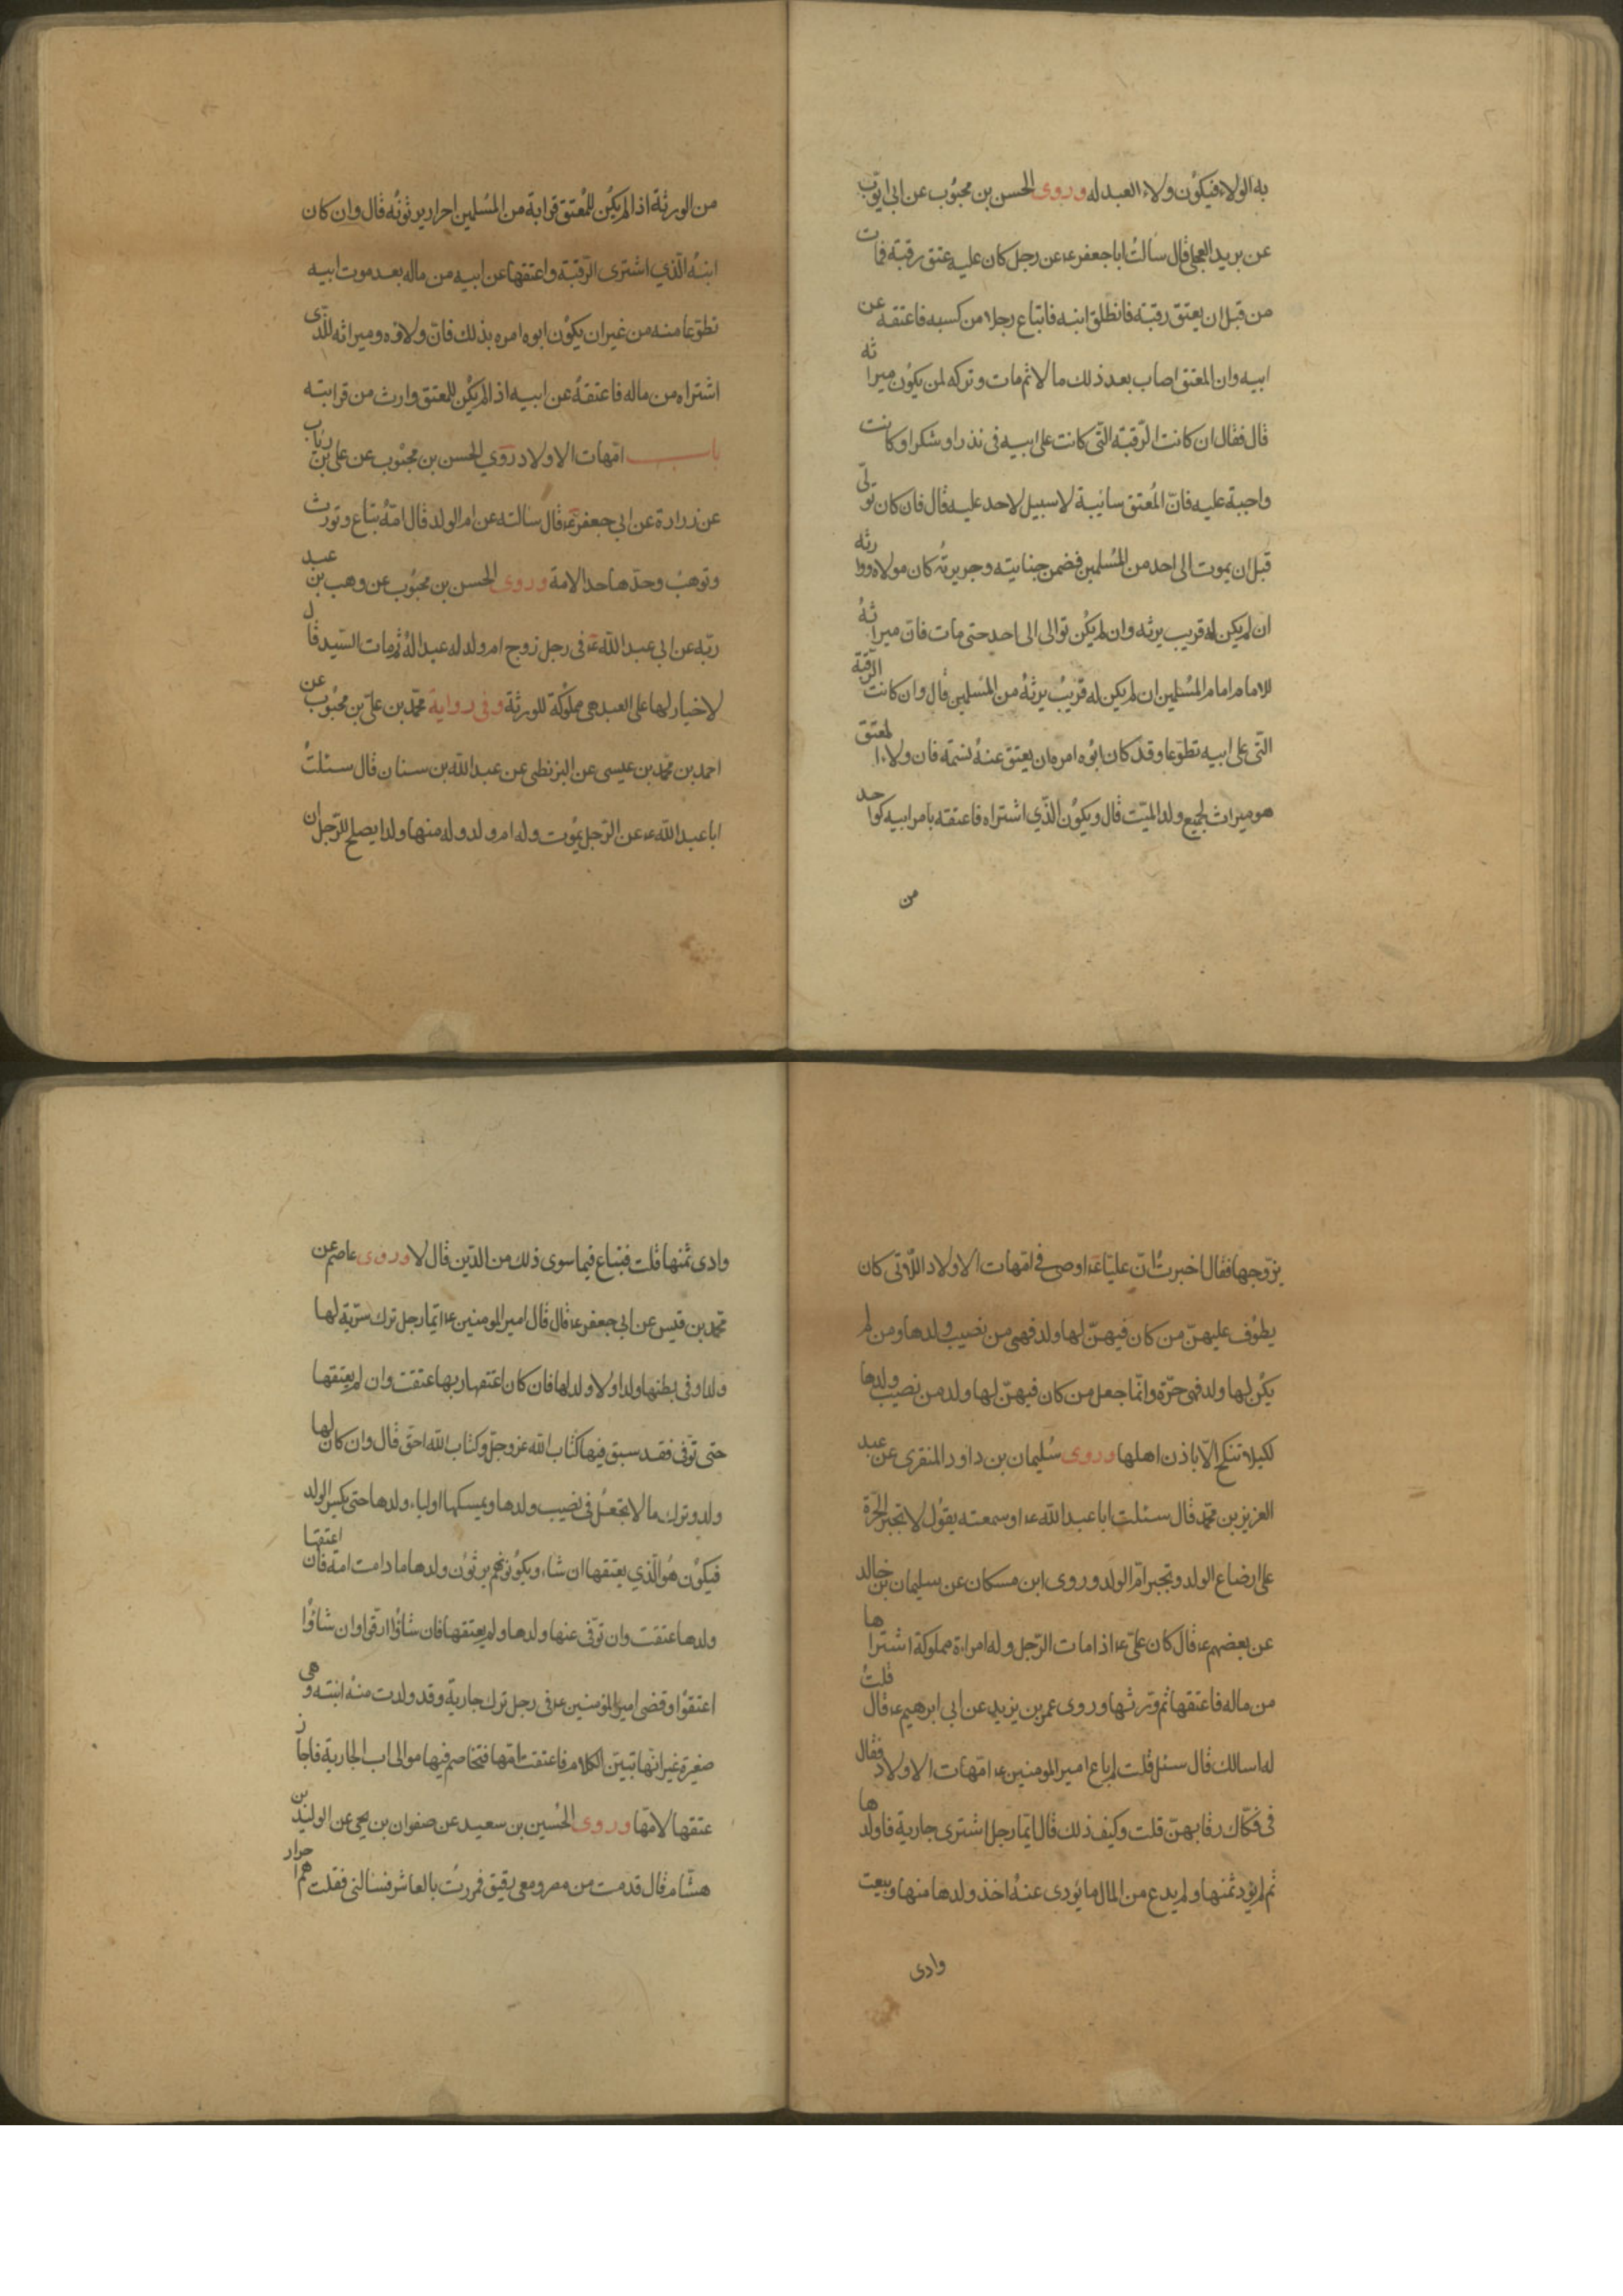 به الولاء فيكون ولاء العبد له وروى الحسن بن محبوب عن ابي ايوب
عن بريد العجلي قال سالت ابا جعفر ع عن رجل كان عليه عتق رقبة فمات
من قبل ان يعتق رقبة فانطلق ابنه فابتاع رجلا من كسبه فاعتقه عن
ابيه وان المعتق اصاب بعد ذلك مالا ثم مات وتركه لمن يكون ميراثه
قال فقال ان كانت الرقبة التى كانت على ابيه فى نذر او شكر او كانت
واجبة عليه فانّ المُعتق سائبة لا سبيل لاحد عليه قال فان كان تولّى
قبل ان يموت الى احد من المُسلمين فضمن جنايته وجريرتُه كان مولاه ووارثه
ان لم يكن له قريب يرثه وان لم يكُن توالى الى احد حتى مات فانّ ميراثهُ
للامام امام المُسلمين ان لم يكن له قريبٌ يرثهُ من المُسلمين قال وان كانت الرقبة
التّى على ابيه تطوّعا وقد كان ابُوه امره ان يعتق عنهُ نسمة فان ولاء المعتق
هو ميراث لجميع ولد الميّت قال ويكوُن الّذي اشتراه فاعتقه بامر ابيه كواحد
من
من الورثة اذا لم يكُن للمُعتق قرابة من المُسلمين احرار يرثونُه قال وان كان
ابنهُ الّذي اشترى الرّقبة واعتقها عن ابيه من ماله بعد موت ابيه
تطوّعا منه من غير ان يكوُن ابوه امره بذلك فانّ ولاؤه وميراثه للّذى
اشتراه من ماله فاعتقهُ عن ابيه اذا لم يكُن للمعتق وارث من قرابته
باب امّهات الاولاد روي الحسن بن محبُوب عن على بن رئاب
عن زرارة عن ابي جعفر ع قال سالته عن ام الولد قال امةٌ تباع وتورث
وتوهبُ وحدّها حد الامة وروى الحسن بن محبُوب عن وهب بن عبد
ربّه عن ابي عبد الله ع فى رجل زوج ام ولد له عبدا لهُ ثم مات السّيد قال
لا خيار لها على العبد هى مملوكة للورثة وفى رواية محمّد بن علىّ بن محبُوب عن
احمد بن محمّد بن عيسى عن البزنطى عن عبد الله بن سنان قال سئلتُ
ابا عبد الله ع عن الرّجل يمُوت وله ام ولد وله منها ولد ايصلح للرّجل ان
يزّوجها فقال اخبرتُ انّ عليّا ع اوصى فى امّهات الاولاد اللّاتى كان
يطوُف عليهنّ من كان فيهنّ لها ولد فهى من نصيب ولدها ومن لم
يكُن لها ولد فهى حرّة وانّما جعل من كان فيهنّ لها ولد من نصيب ولدها
لكيلا تنكح الّا باذن اهلها وروى سُليمان بن داود المنقرى عن عبد
العزيز بن محمّد قال سئلت ابا عبد الله ع او سمعته يقوُل لا تجبر الحُرّة
على ارضاع الولد وتجبر امّ الولد وروى ابن مسكان عن سليمان بن خالد
عن بعضهم ع قال كان علىّ ع اذا مات الرّجل وله امراءة مملوكة اشتراها
من ماله فاعتقها ثم ورّثها وروى عمر بن يزيد عن ابي ابرهيم ع قال قلتُ
له اسالك قال سئل قلت لم باع امير المومنين ع امّهات الاولاد فقال
فى فكّاك رقابهنّ قلت وكيف ذلك قال ايّما رجل اشترى جارية فاولدها
ثم لم يؤد ثمنها ولم يدع من المال ما يؤدى عنهُ اخذ ولدها منها وبيعت
وادى
وادى ثمنها قلت فتباع فيما سوى ذلك من الدّين قال لا وروى عاصم عن
محمّد بن قيس عن ابي جعفر ع قال قال امير المومنين ع ايّما رجل ترك سرّية لها
ولد او فى بطنها ولد او لا ولد لها فان كان اعتقها ربها عتقت وان لم يعتقها
حتى توّفى فقد سبق فيها كتاب الله عز وجلّ وكتاب الله احق قال وان كان لها
ولد وترك مالا تجعلُ فى نصيب ولدها ويمسكها اولياء ولدها حتى يكبر الولد
فيكوُن هُو الّذي يعتقها ان شاء ويكوُنونهم يرثوُن ولدها ما دامت امة فان اعتقها
ولدها عتقت وان توّفى عنها ولدها ولم يعتقها فان شاؤُا ارقّوا وان شاؤُا
اعتقوُا وقضى امير المؤمنين ع فى رجل ترك جارية وقد ولدت منهُ ابنته وهى
صغيرة غير انّها تبيّن الكلام فاعتقت امّها فتخاصم فيها موالى اب الجارية فاجاز
عتقها لامّها وروى الحُسين بن سعيد عن صفوان بن يحيى عن الوليد بن
هشام قال قدمت من مصر ومعى رقيق فمررتُ بالعاشر فسالنى فقلت هم احرار